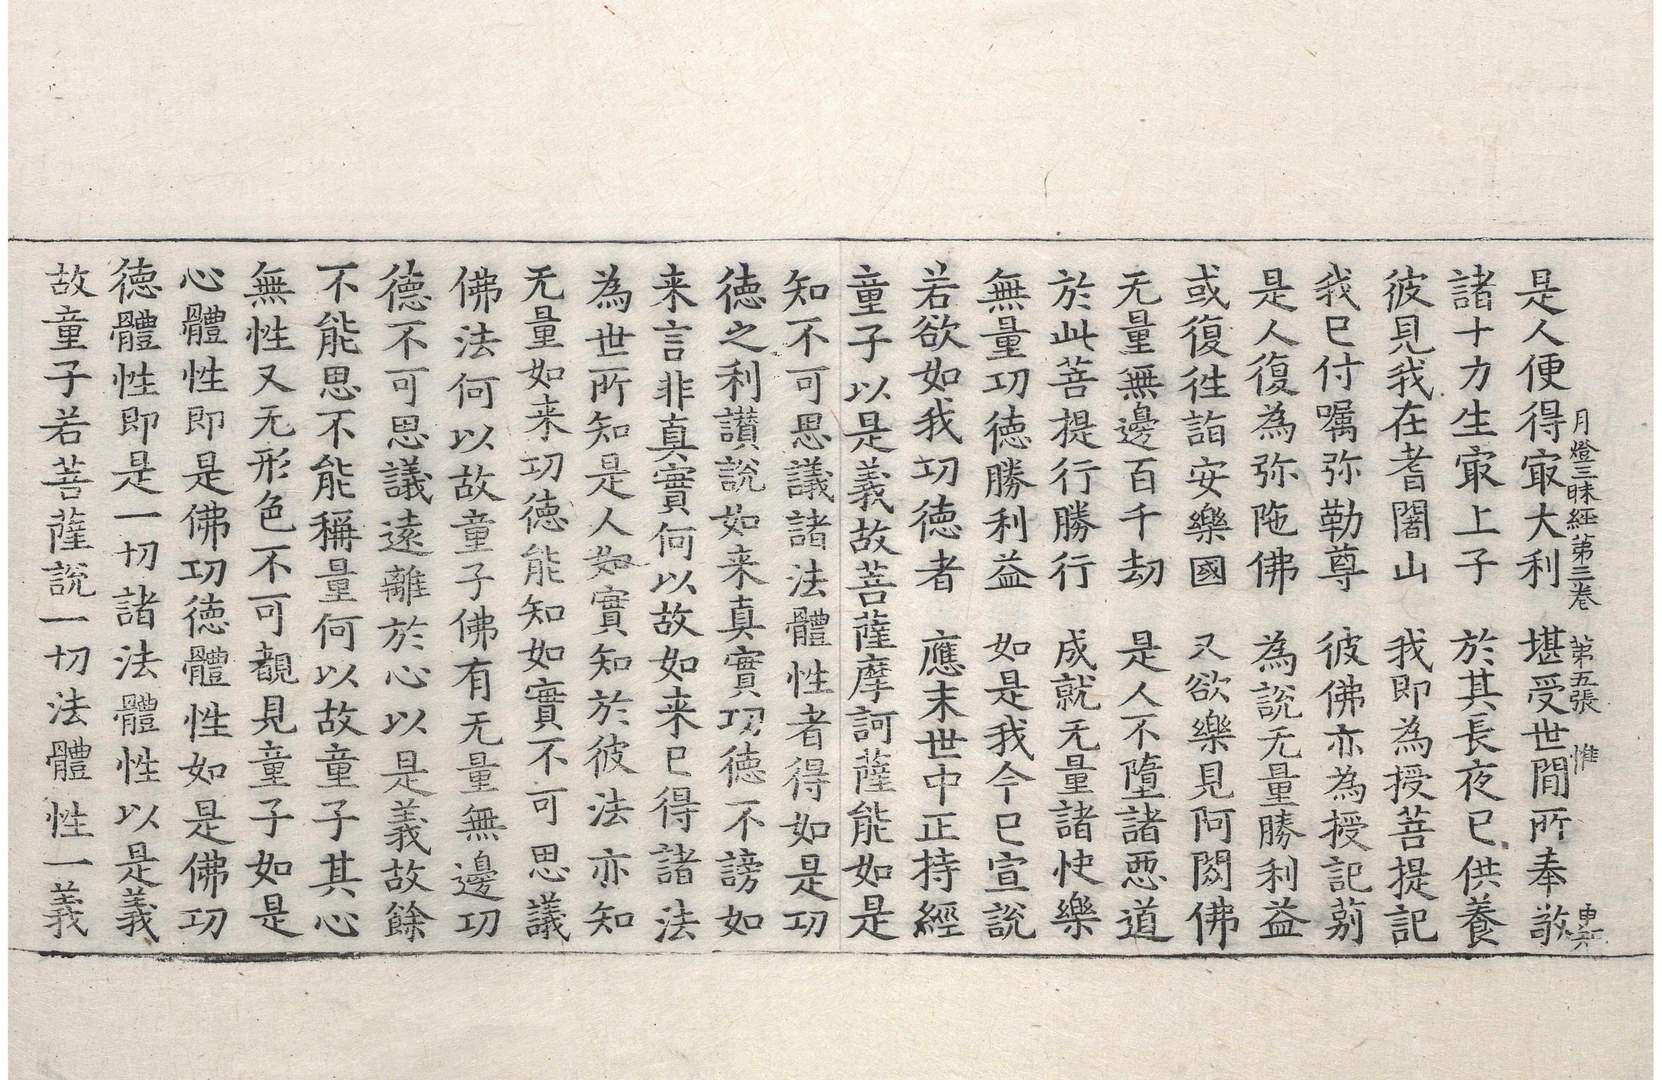 月燈三昧經第三卷 第五張 惟
是人便得㝡大利 堪受世間所奉敬
諸十力生㝡上子 於其長夜已供養
彼見我在耆闍山 我即為授菩提記
我已付囑弥勒尊 彼佛亦為授記莂
是人復為弥陁佛 為說无量勝利益
或復往詣安樂國 又欲樂見阿閦佛
无量無邊百千劫 是人不墮諸惡道
於此菩提行勝行 成就无量諸快樂
無量功德勝利益 如是我今已宣說
若欲如我功德者 應末世中正持經
童子以是義故菩薩摩訶薩能如是
知不可思議諸法體性者得如是功
德之利讚說如来真實功德不謗如
来言非真實何以故如来已得諸法
為世所知是人如實知於彼法亦知
无量如来功德能知如實不可思議
佛法何以故童子佛有无量無邊功
德不可思議遠離於心以是義故餘
不能思不能稱量何以故童子其心
無性又无形色不可觀見童子如是
心體性即是佛功德體性如是佛功
德體性即是一切諸法體性以是義
故童子若菩薩說一切法體性一義